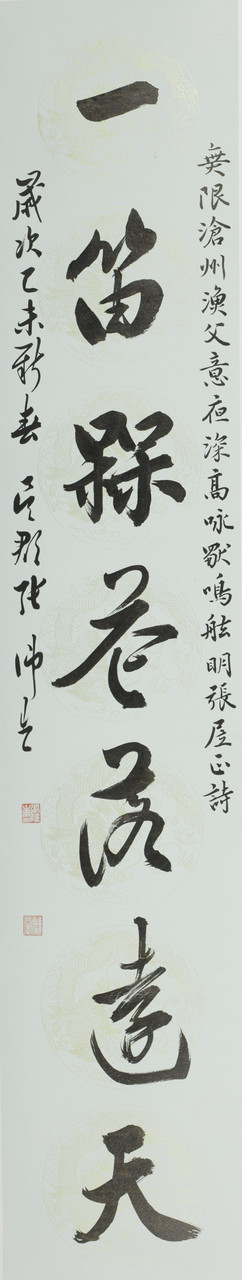 一笛槑花落遠天
無限滄州漁父意夜深高咏獨鳴舷明張居正詩
歲次乙未新春吳郡張沛